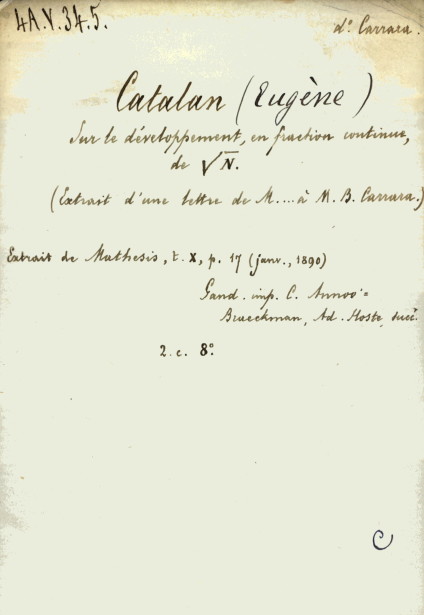 4A.V.34.5.
d.° Carrara.
Catalan (Eugène)
Sur le développement, en fraction continue,
de √N.
(Extrait d'une lettre de M.... à M. B. Carrara.)
Extrait de Mathesis, t. X, p. 17 (janv., 1890)
Gand. imp. C. Annoo-
Braeckman, Ad. Hoste, succ.r
2. c. 8°.
C